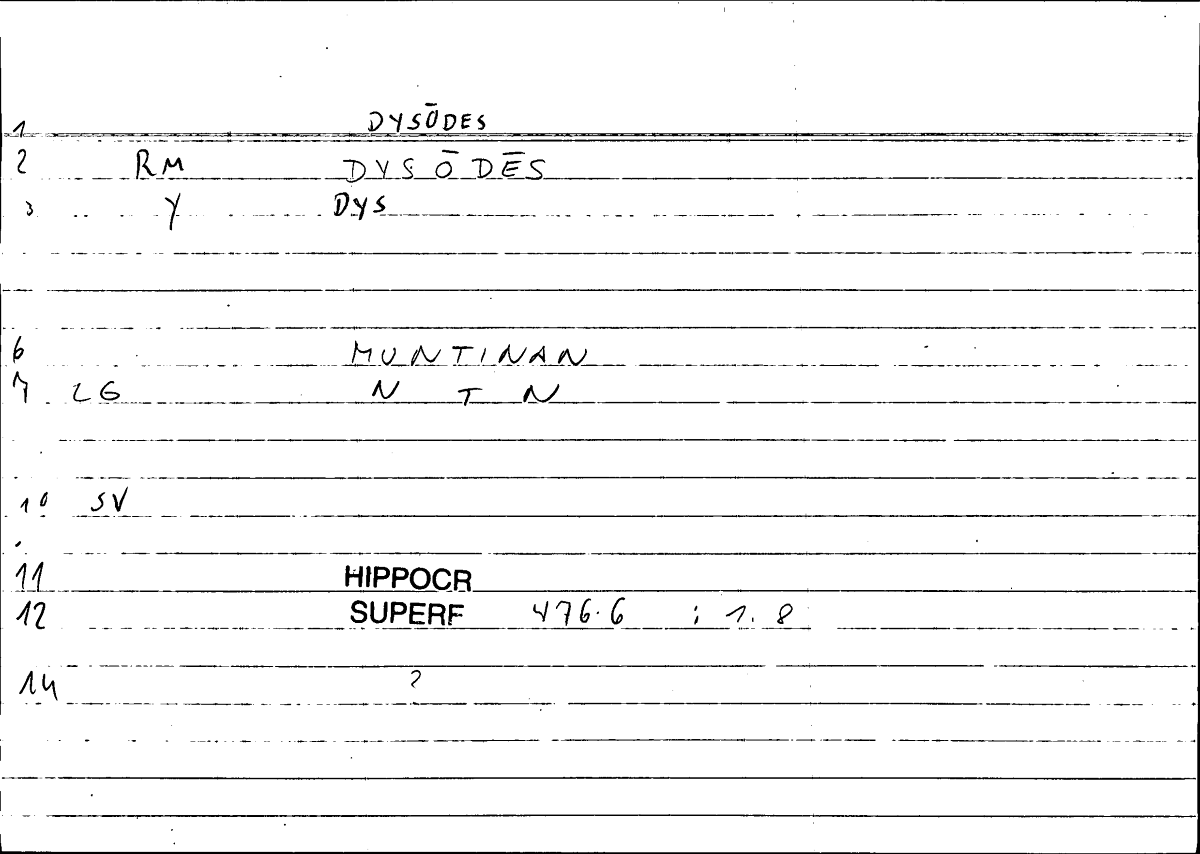 1 DYSŌDES
2 RM DYSŌDĒS
3 Y DYS
6 MUNTINAN
7 LG N T N
10 SV
11 HIPPOCR
12 SUPERF 476.6 : 1.8
14 ?